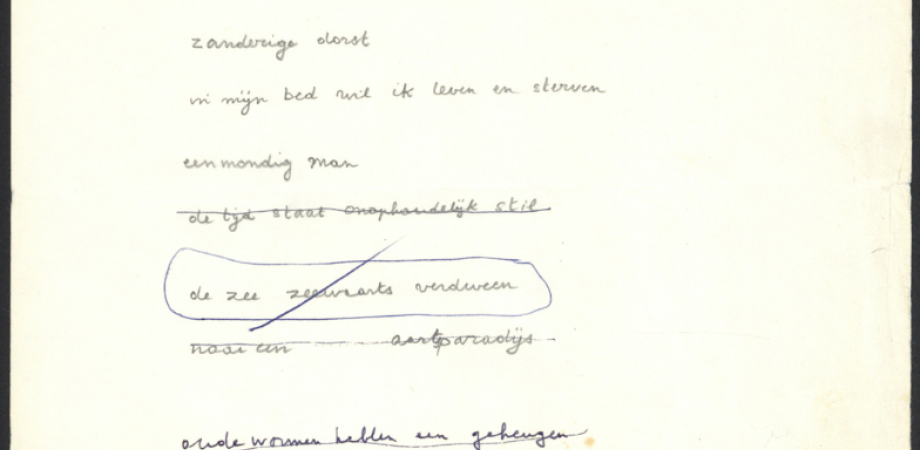 zanderige dorst
in mijn bed wil ik leven en sterven
eenmondig man
de tijd staat onophoudelijk stil
de zee zeewaarts verdween
naar een aartsparadijs
oude wormen hebben een geheugen